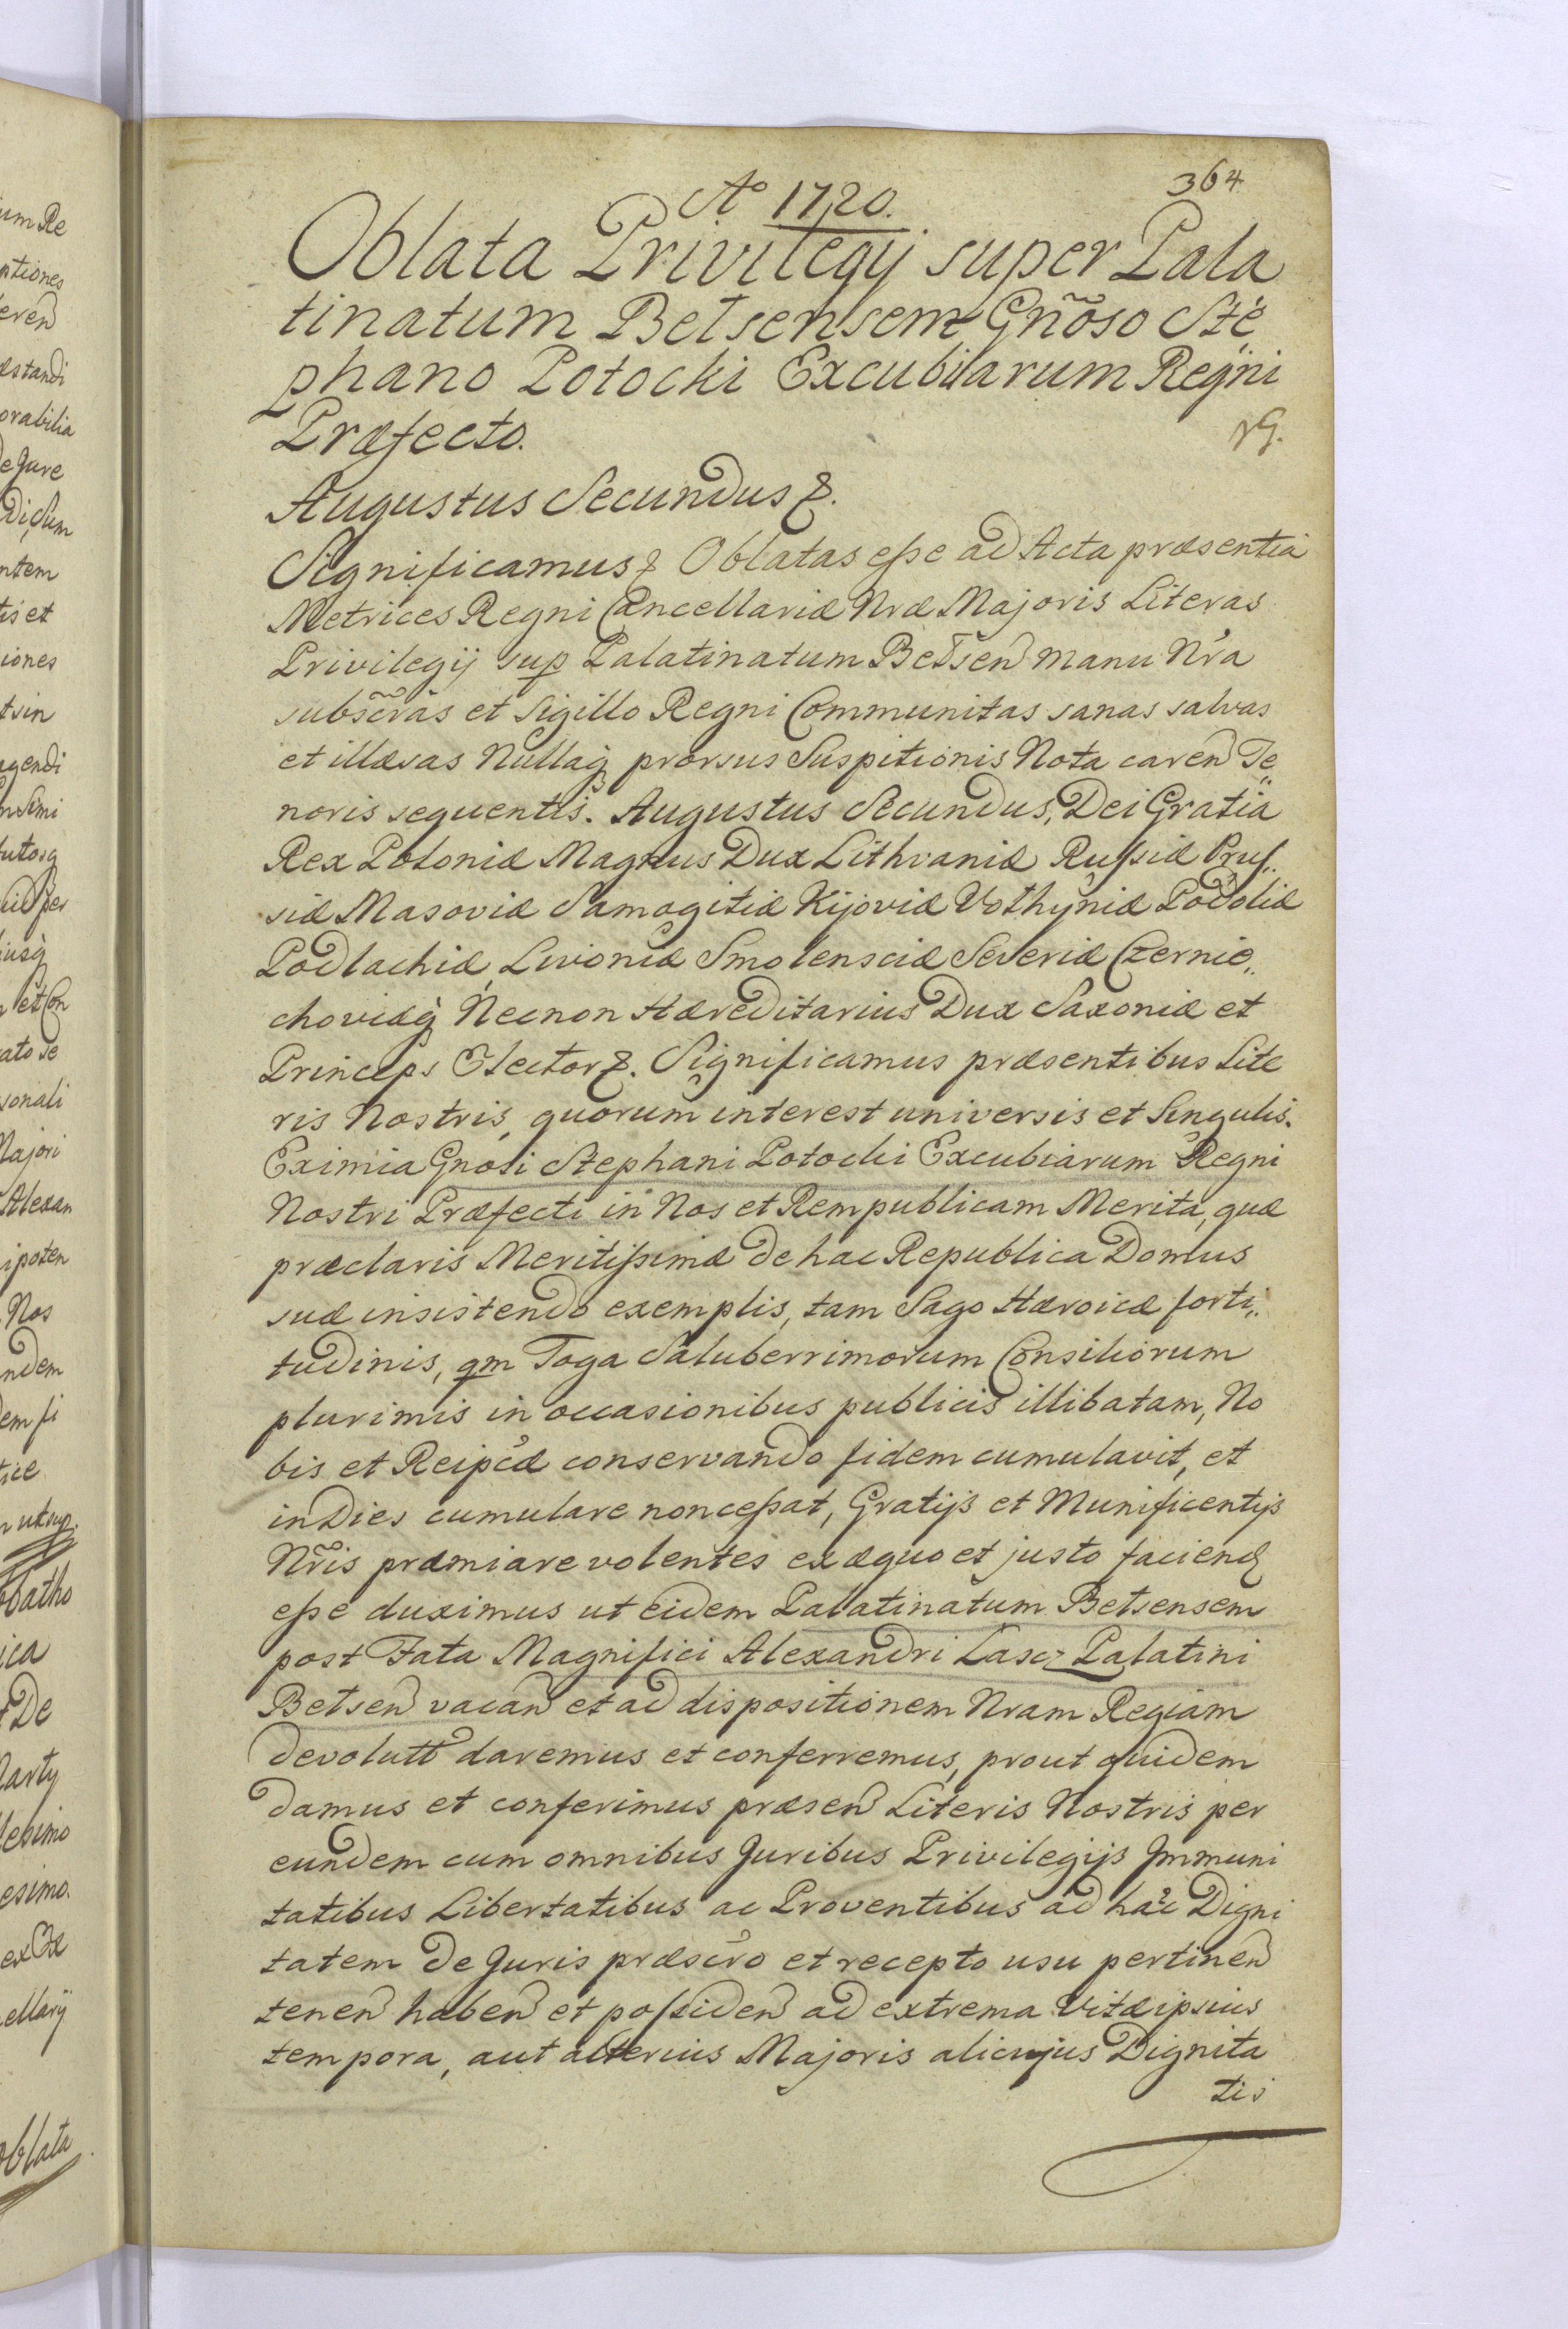 364
Aº 1720.
Oblata Privilegij super Pala
tinatum Belsensem Gñoso Ste„
phano Potocki Excubiarum Regni
Præfecto.
Augustus Secundus &.
Significamus & Oblatas eſse ad Acta præsentia
Metrices Regni Cancellariæ Nræ Majoris Literas
Privilegij sup Palatinatum Belsen manu Nra
subscras et Sigillo Regni Communitas sanas salvas
et illæsas Nullaq prorsus Suspitionis Nota caren Te„
noris sequentis. Augustus Secundus, Dei Gratia
Rex Poloniæ Magnus Dux Lithvaniæ Ruſsiæ Pruſ„
siæ Masoviæ Samogitiæ Kijoviæ Volhyniæ Podoliæ
Podlachiæ, Livoniæ Smolensciæ Severiæ Czernie„
choviæq Necnon Hæreditarius Dux Saxoniæ et
Princeps Elector &. Significamus præsentibus Lite
ris Nostris, quorum interest universis et Singulis.
Eximia Gnosi Stephani Potocki Excubiarum Regni
Nostri Præfecti in Nos et Rempublicam Merita, quæ
præclaris Meritiſsimæ de hac Republica Domus
suæ insistendo exemplis, tam Sago Hæroicæ forti„
tudinis, qm Toga Saluberrimorum Consiliorum
plurimis in occasionibus publicis illibatam, No
bis et Reipcæ conservando fidem cumulavit, et
in Dies cumulare non ceſsat, Gratijs et Munificentijs
Nris præmiare volentes ex æquo et justo faciend
eſse duximus ut eidem Palatinatum Belsensem
post Fata Magnifici Alexandri Lascz Palatini
Belsen vacan et ad dispositionem Nram Regiam
devolutt daremus et conferremus, prout quidem
damus et conferimus præsen Literis Nostris per
eundem cum omnibus Juribus Privilegijs Immuni
tatibus Libertatibus ac Proventibus ad hac Digni
tatem de Juris præscro et recepto usu pertinen
tenen haben et poſsiden ad extrema Vitæ ipsius
tempora, aut alterius Majoris alicujus Dignita
tis